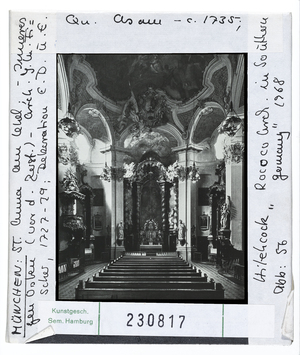 Qu. Asam – c. 1735,
MÜNCHEN: St. Anna am Lehel, Inneres
gen Osten (vor d. Zerst.). Arch. J. M. Fi=
scher, 1727-29, Dekoration C. D. u. E.
Hitchcock „Rococo Arch. in Southern
Germany" 1968
Abb: 56
Kunstgesch.
Sem. Hamburg
230817